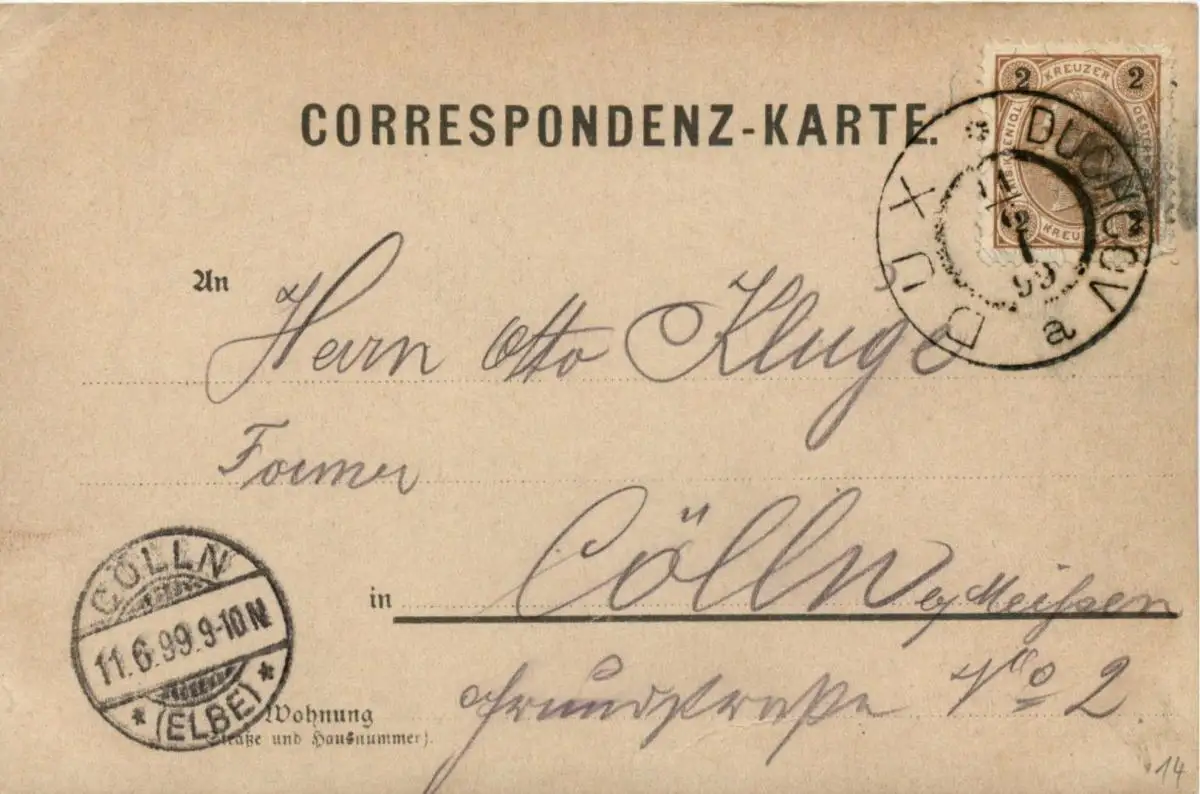 CORRESPONDENZ-KARTE.
2 KREUZER 2
2 KREU 2
DUX * DUCHCOV a
11/6 99
An Herrn Otto Kluge
Former
in Cölln b/ Meißen
Grundstraße No 2
Wohnung
(Straße und Hausnummer).
CÖLLN
11.6.99.9-10N
* (ELBE) *
14